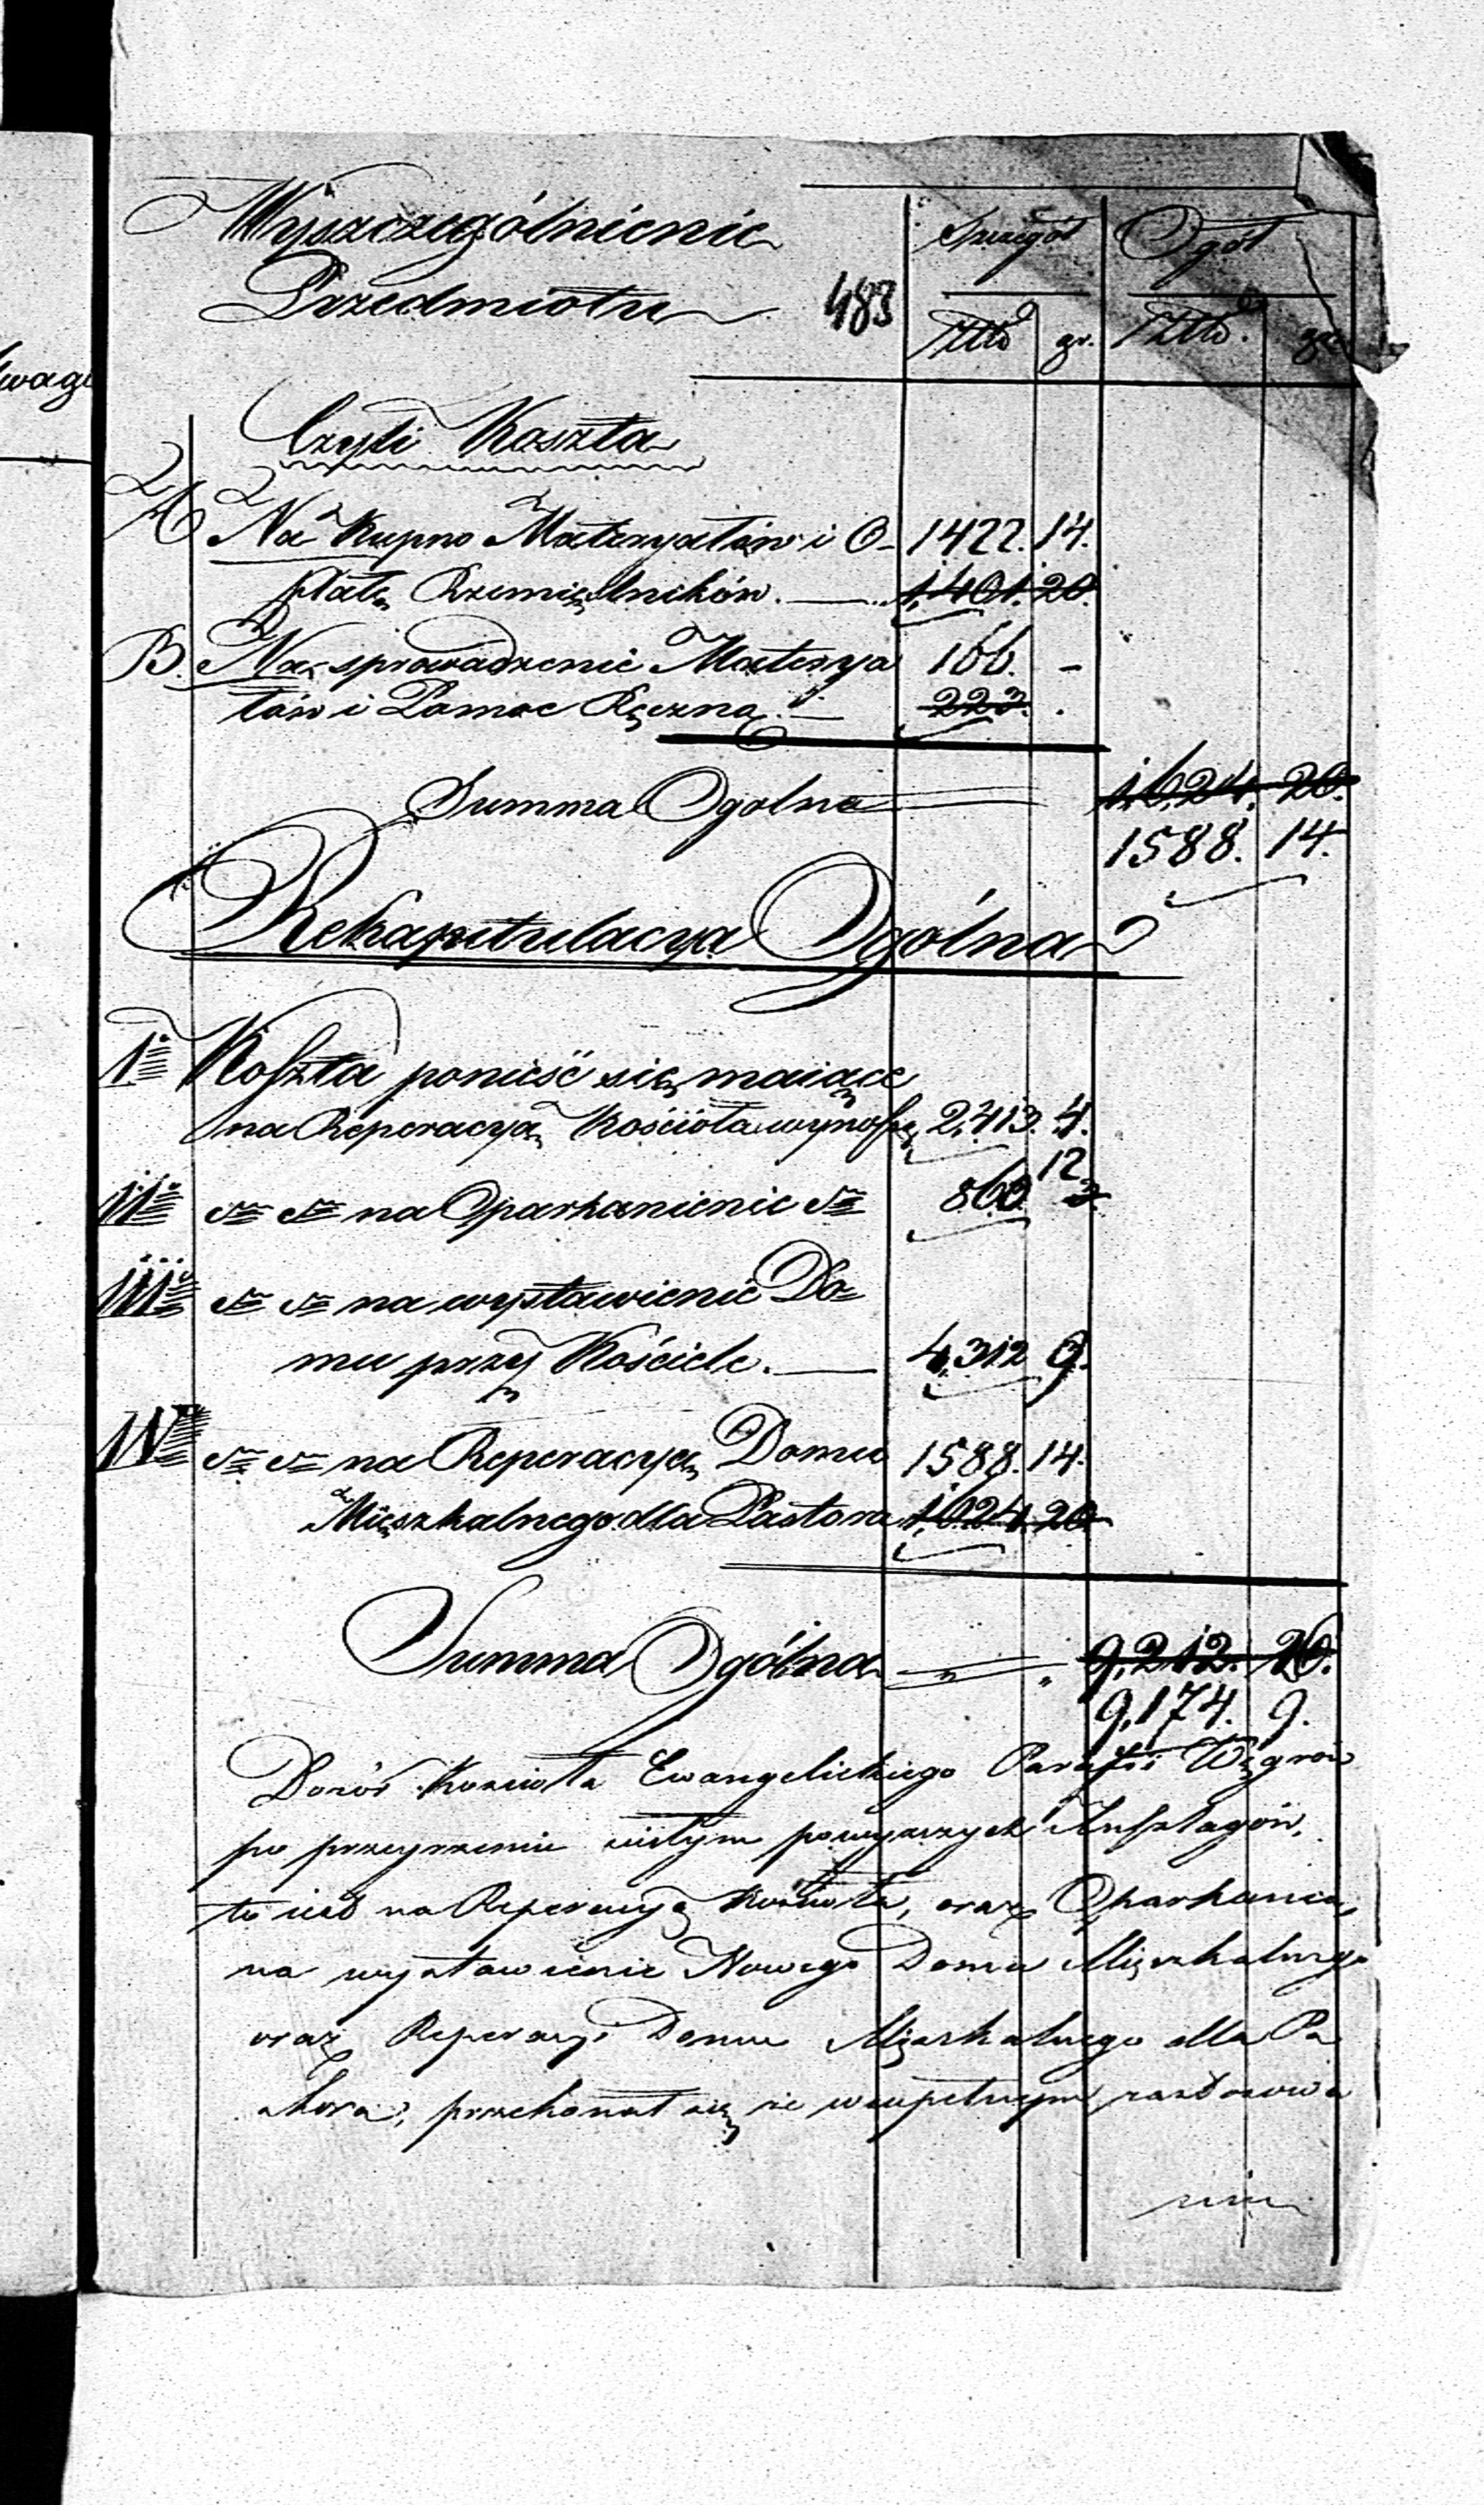 wagi
Wyszczegolnienie
Przedmiotu
483
Szczegół Ogół
Złł gr. Złł. gr.
Czyli Koszta
A Na Kupno Materyałów i O- 1422. 14.
płatę Rzemięslników. 1,401. 20.
B. Na sprowadzenie Materya 166. -
łów i Pomoc Ręczną. 223. .
Summa Ogolna 1,624. 20.
1588. 14.
Rekapitulacya Ogólna
I Koszta ponieść się maiące
na Reperacyą Kościoła wynoszą 2,413. 4.
12
II na Oparkanienie 860 3
III na wystawienie Do=
mu przy Kościele. 4,312 9.
IV na Reperacyą Domu 1588. 14.
Mięszkalnego dla Pastora 1,624. 20.
Summa Ogólna 9,212. 20.
9,174. 9.
Dozór Kościoła Ewangelickiego Parafii Węgrow
po przeyrzeniu ścisłym powyższych Anszlagów,
to iest na Reperacyą Kościoła, oraz Oparkania,
na wystawienie Nowego Domu Mięszkalnego
oraz Reperacyi Domu Mięszkalnego dla Pa
stora, przekonał się że w zupełnym zastosowa
niu